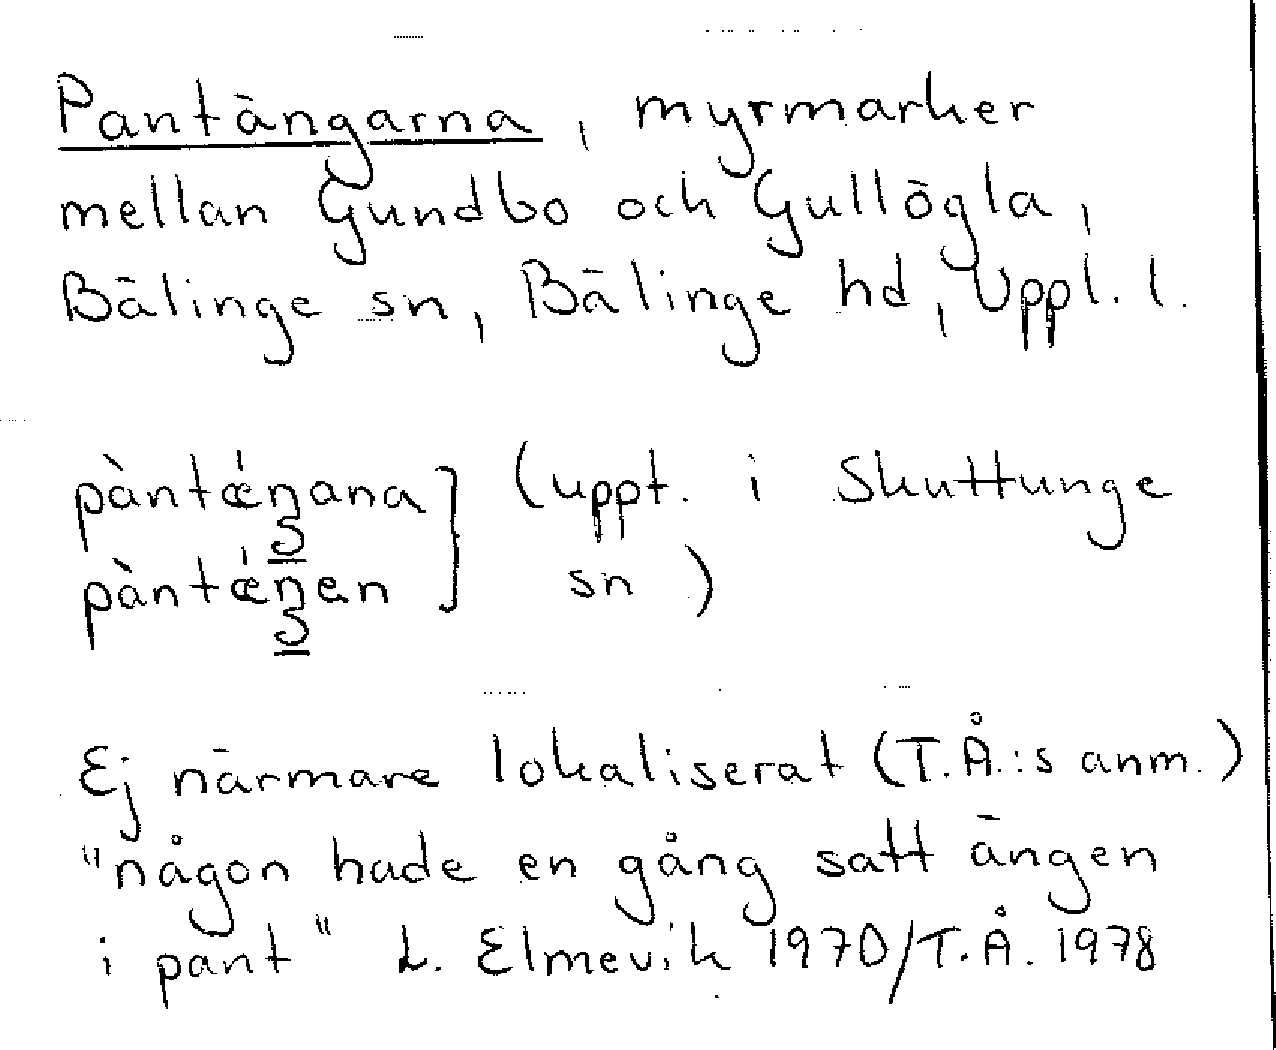 Pantängarna, myrmarker
mellan Gundbo och Gullögla,
Bälinge sn, Bälinge hd, Uppl. l.
pàntǽŋana
pàntǽŋen
(uppt. i Skuttunge
sn)
Ej närmare lokaliserat (T.Å.:s anm.)
"någon hade en gång satt ängen
i pant" L. Elmevik 1970/T.Å. 1978